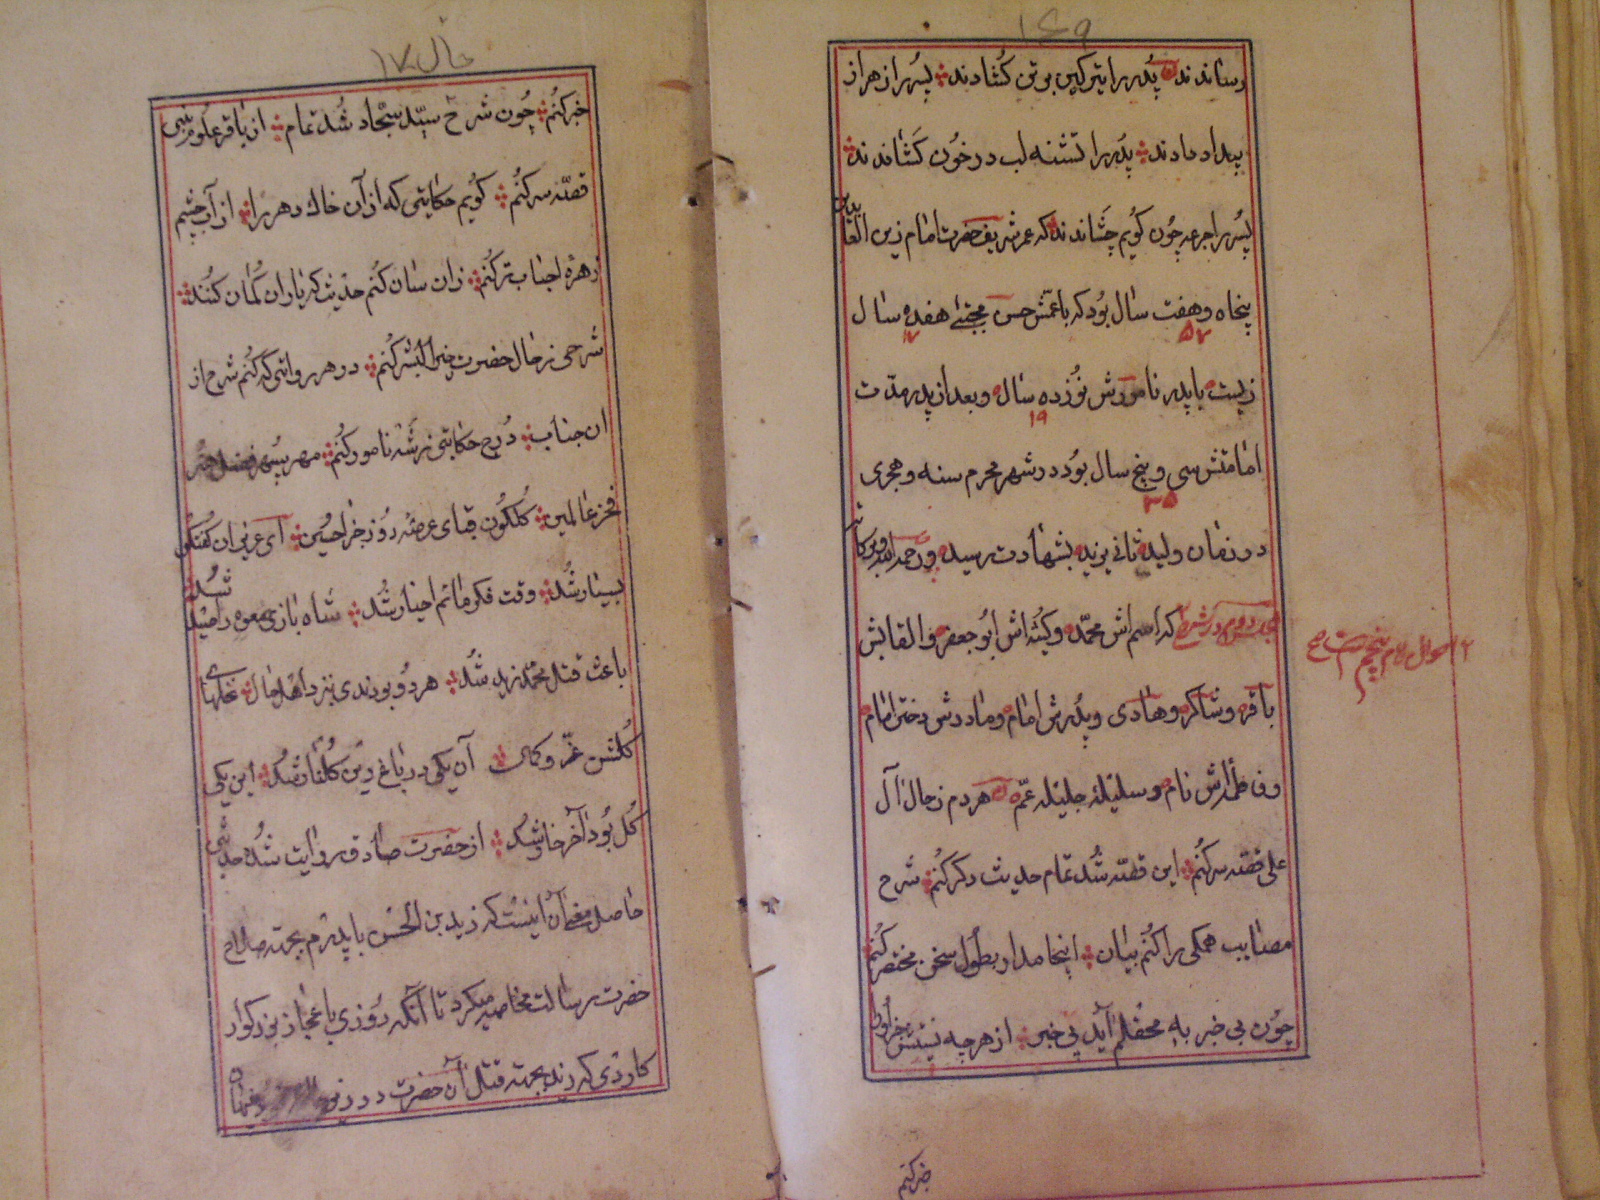 ۱۶۹
رساندند پدر را تیر کین بر تن کشادند پسر را زهر از
بیداد دادند پدر را تشنه لب در خون کشاندند
پسر را جرعه چون کویم چشاندند که عمر شریف حضرت امام زین العابدین
پنجاه و هفت سال بود که با عمّش حسن مجتبی هفده سال
۵۷ ۱۷
زیست با پدر نامورش نوزده سال و بعد از پدر مدّت
۱۹
امامتش سی و پنج سال بود در شهر محرم سنه و هجری
۳۵
در زمان ولید ثانی یزید بشهادت رسید و رحمة الله و برکاته
مجلس دویم در شرح که اسم اش محمّد و کنیه اش ابو جعفر و القابش
۲ احوال امام پنجم
باقر و شاکر و هادی و پدرش امام و مادرش دختر امام
و فاطمه اش نام و سلیله جلیله عمّ هر دم ز حال آل
علی قصّه سر کنم این قصّه شد تمام حدیث دکر کنم شرح
مصایب همکی را کنم بیان اینجا مدار بطول سخن مختصر کنم
چون بی خبر به محفلم آید پی خبر از هر چه نیستش خبر او را
خبر کنم
حال ۱۷۰
خبر کنم چون شرح سیّد سجّاد شد تمام از باقر علوم نبی
قصّه سر کنم کویم حکایتی که از آن خاک دهر را از آب چشم
زهره اجناب تر کنم زان سان کنم حدیث که یاران کمان کنند
شرحی ز حال حضرت خیر البشر کنم در هر روایتی که کنم شرح از
ان جناب درج حکایتی ز شه نامور کنم مهر سپهر فضل
فخر عالمین کلکون قبای عرصه روز جزا حسین ای عزیزان کفتکو
بسیار شد وقت فکر ماتم اخیار شد شاه بازی معوه را صید شد
باعث قتل محمّد زید شد هر دو بودندی بنزد اهل حال نخلهای
کلشن عزّ و کمال آن یکی در باغ دین کلنار شد این یکی
کل بود آخر خار شد از حضرت صادق روایت شده حدیثی
حاصل معنی آن اینست که زید بن الحسن با پدرم بجهته صلاح
حضرت رسالت مخاصمه میکرد تا آنکه روزی باعجاز بزرکوار
کاردی که زید بجهته قتل آن حضرت در زیر پنهان